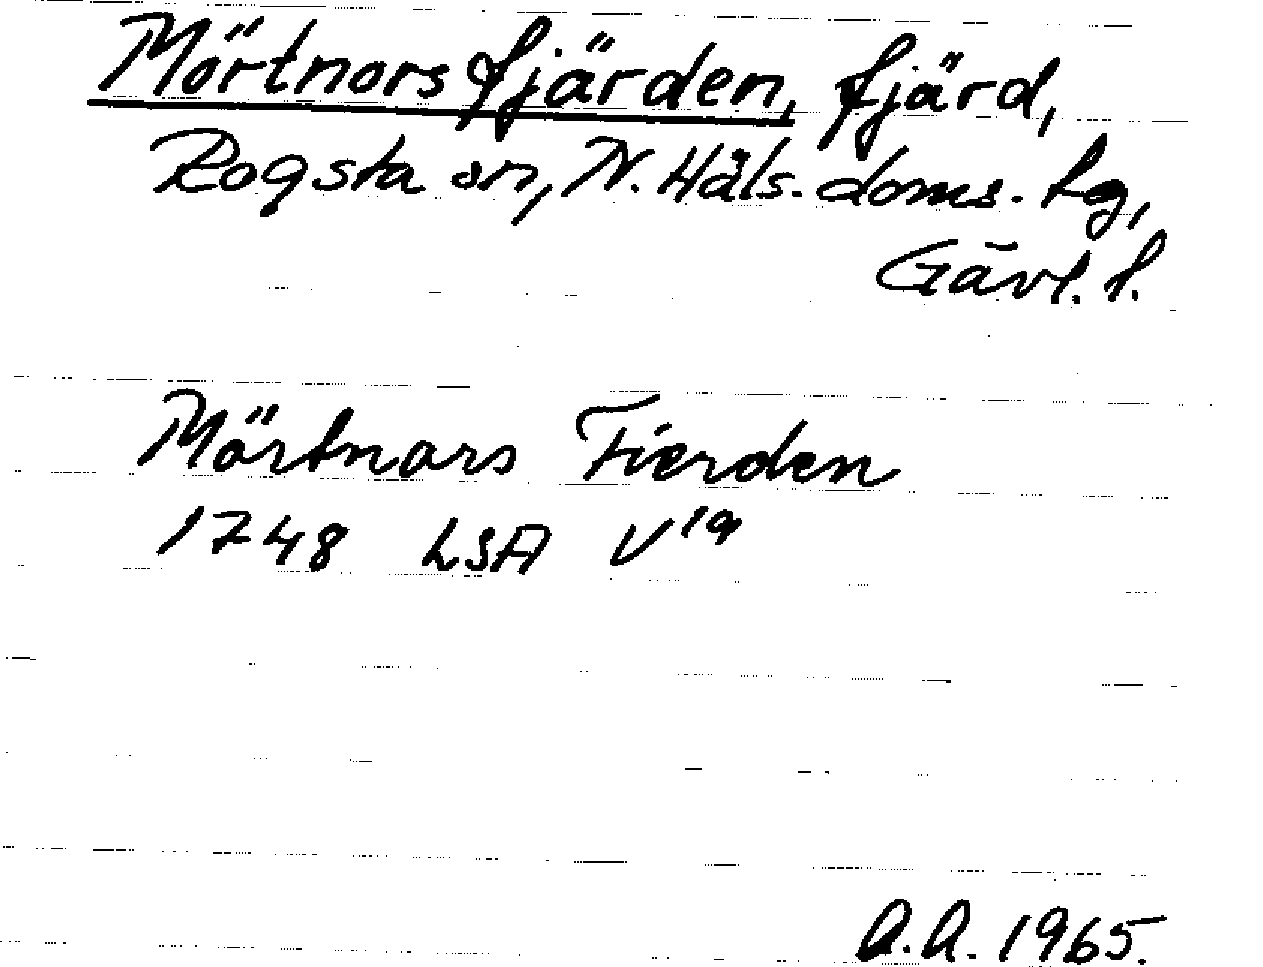 Mörtnorsfjärden, fjärd,
Rogsta sn, N. Häls. doms. tg,
Gävl. l.
Mörtnars Fierden
1748 LSA V¹⁹
A.A. 1965.